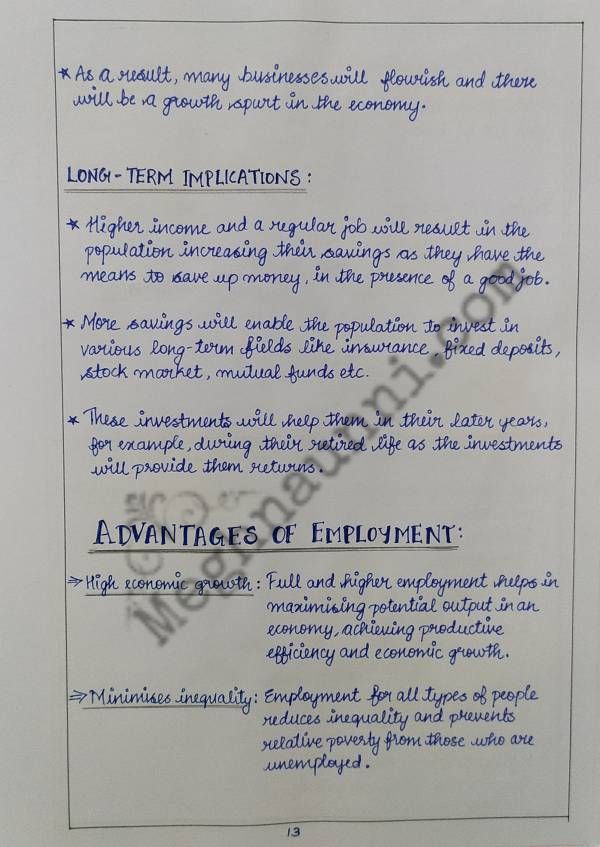 * As a result, many businesses will flourish and there
will be a growth spurt in the economy.
LONG-TERM IMPLICATIONS:
* Higher income and a regular job will result in the
population increasing their savings as they have the
means to save up money, in the presence of a good job.
* More savings will enable the population to invest in
various long-term fields like insurance, fixed deposits,
stock market, mutual funds etc.
* These investments will help them in their later years,
for example, during their retired life as the investments
will provide them returns.
ADVANTAGES OF EMPLOYMENT:
⇒ High economic growth: Full and higher employment helps in
maximising potential output in an
economy, achieving productive
efficiency and economic growth.
⇒ Minimises inequality: Employment for all types of people
reduces inequality and prevents
relative poverty from those who are
unemployed.
13
Meghnaunni.com